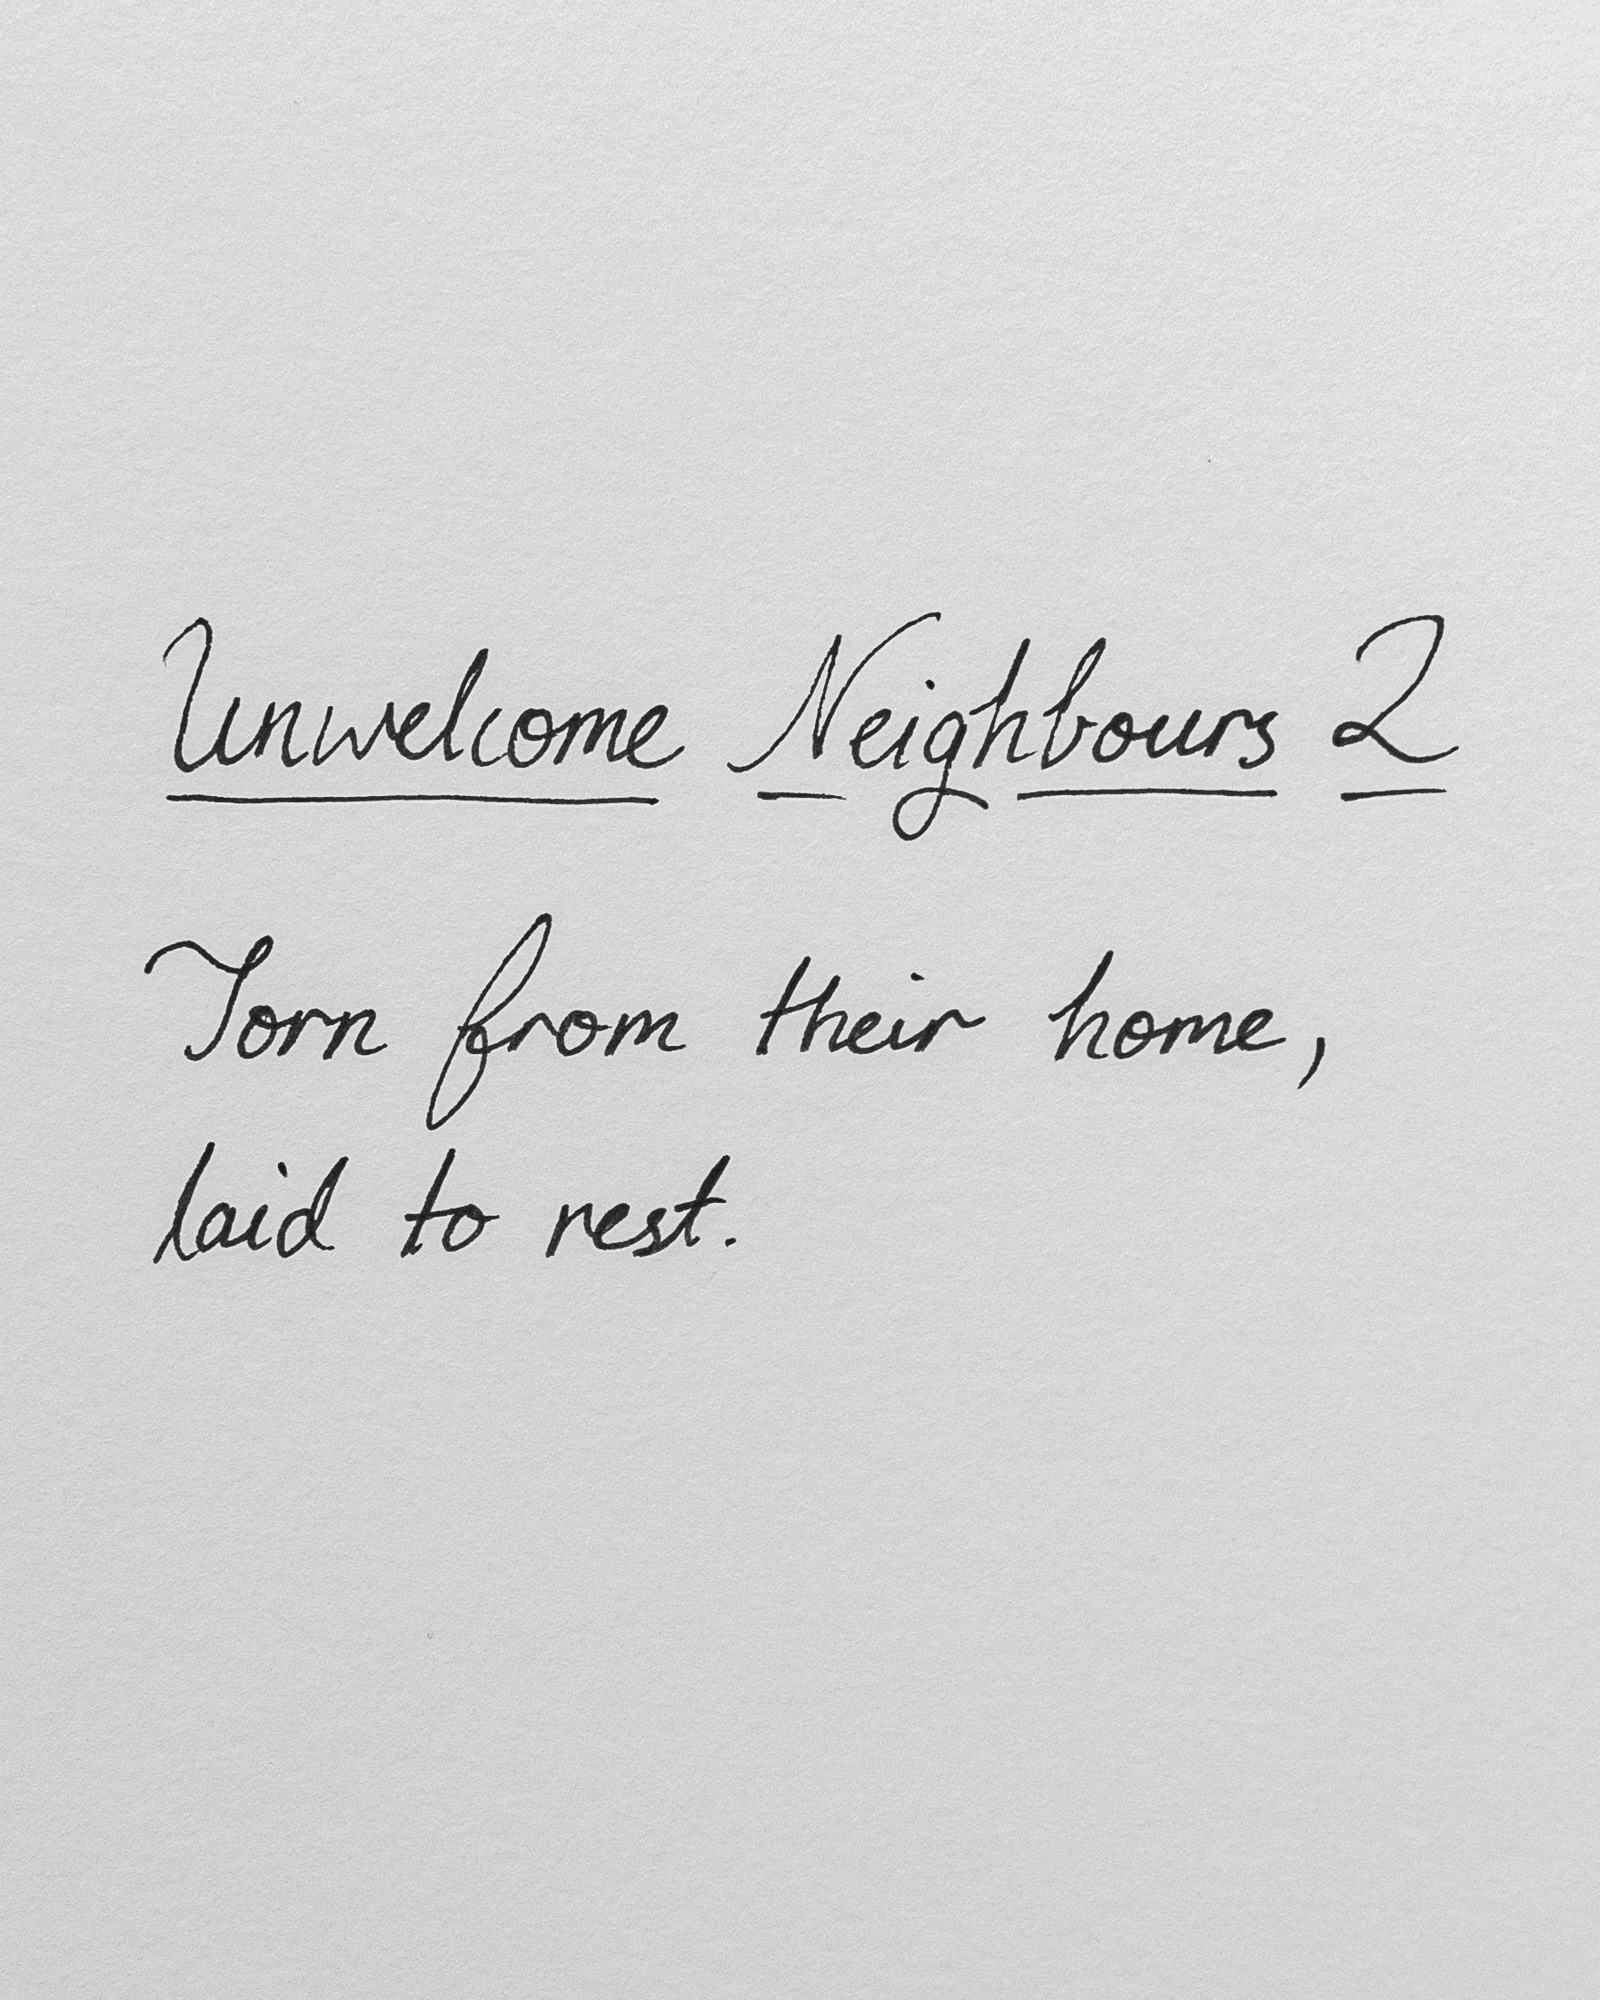 Unwelcome Neighbours 2
Torn from their home,
laid to rest.